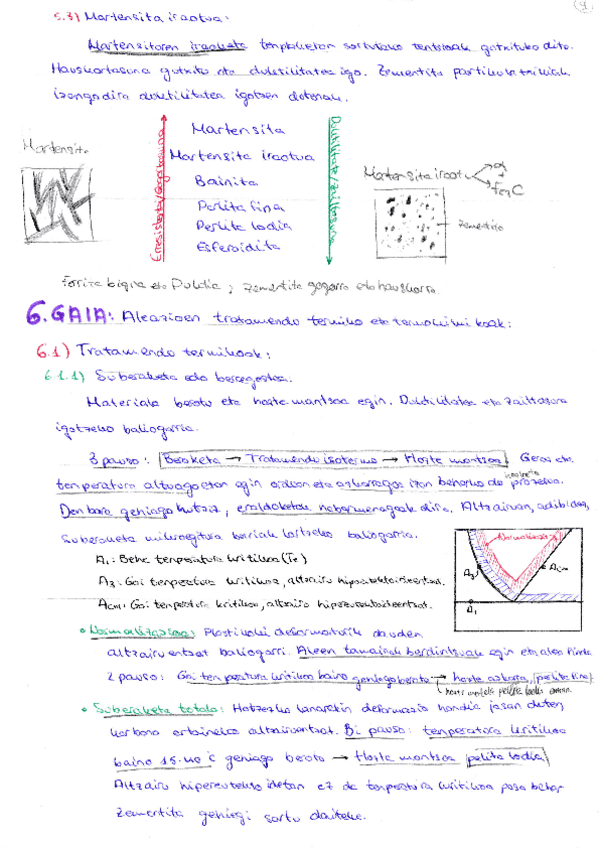 9.
5.3) Martensita iraotua:
Martensitaren iraoketa tenplaketan sortutako tentsioak gutxituko ditu.
Hauskortasuna gutxitu eta duktilitatea igo. Zementita partikula txikiak
izango dira duktilitatea igotzen dutenak.
Martensita
Erresistentzia/Gogortasuna
Martensita
Martensita iraotua
Bainita
Perlita fina
Perlita lodia
Esferoidita
Duktilitatea/Zailtasuna
Martensita iraotu
α
+
Fe3C
Zementita
Ferrita biguna eta Duktila; Zementita gogorra eta hauskorra
6.GAIA: Aleazioen tratamendu termiko eta termokimikoak:
6.1) Tratamendu termikoak:
6.1.1) Suberaketa edo berezgostea.
Materiala berotu eta hozte mantsoa egin. Duktilitatea eta zailtasuna
igotzeko baliogarria.
3 pauso: Beroketa → Tratamendu isotermo → Hozte mantsoa. Geroz eta
tenperatura altuagoetan egin orduan eta azkarragoa izan beharko da prozesua.
Denbora geniago hutzat, eraldaketak nabarmenagoak dira. Altzairuan, adibidez,
Suberaketa mikroegitura berriak lortzeko baliogarria.
A1: Behe tenperatura kritikoa (Te)
A3: Goi tenperatura kritikoa, altzairu hipoeutektoideentzat.
Acm: Goi tenperatura kritikoa, altzairu hipereutektoideentzat.
Normalizazioa
A3
Acm
A1
• Normalizazioa: Plastikoki deformaturik dauden
altzairuentzat baliogarri. Aleen tamainak berdintsuak egin eta alea findu
2 pauso: Goi tenperatura kritikoa baino geniago berotu → hozte azkarra (perlita fina)
hozte motela perlita lodia eman.
• Suberaketa totala: Hotzeko lanarekin deformazio handia jasan duten
karbono ertaineko altzairuentzat. Bi pauso: tenperatura kritikoa
baino 15-40°C geniago berotu → Hozte mantsoa (perlita lodia)
Altzairu hipereutektoidetan ez da tenperatura kritikoa pasa behar
Zementita gehiegi sortu daiteke.